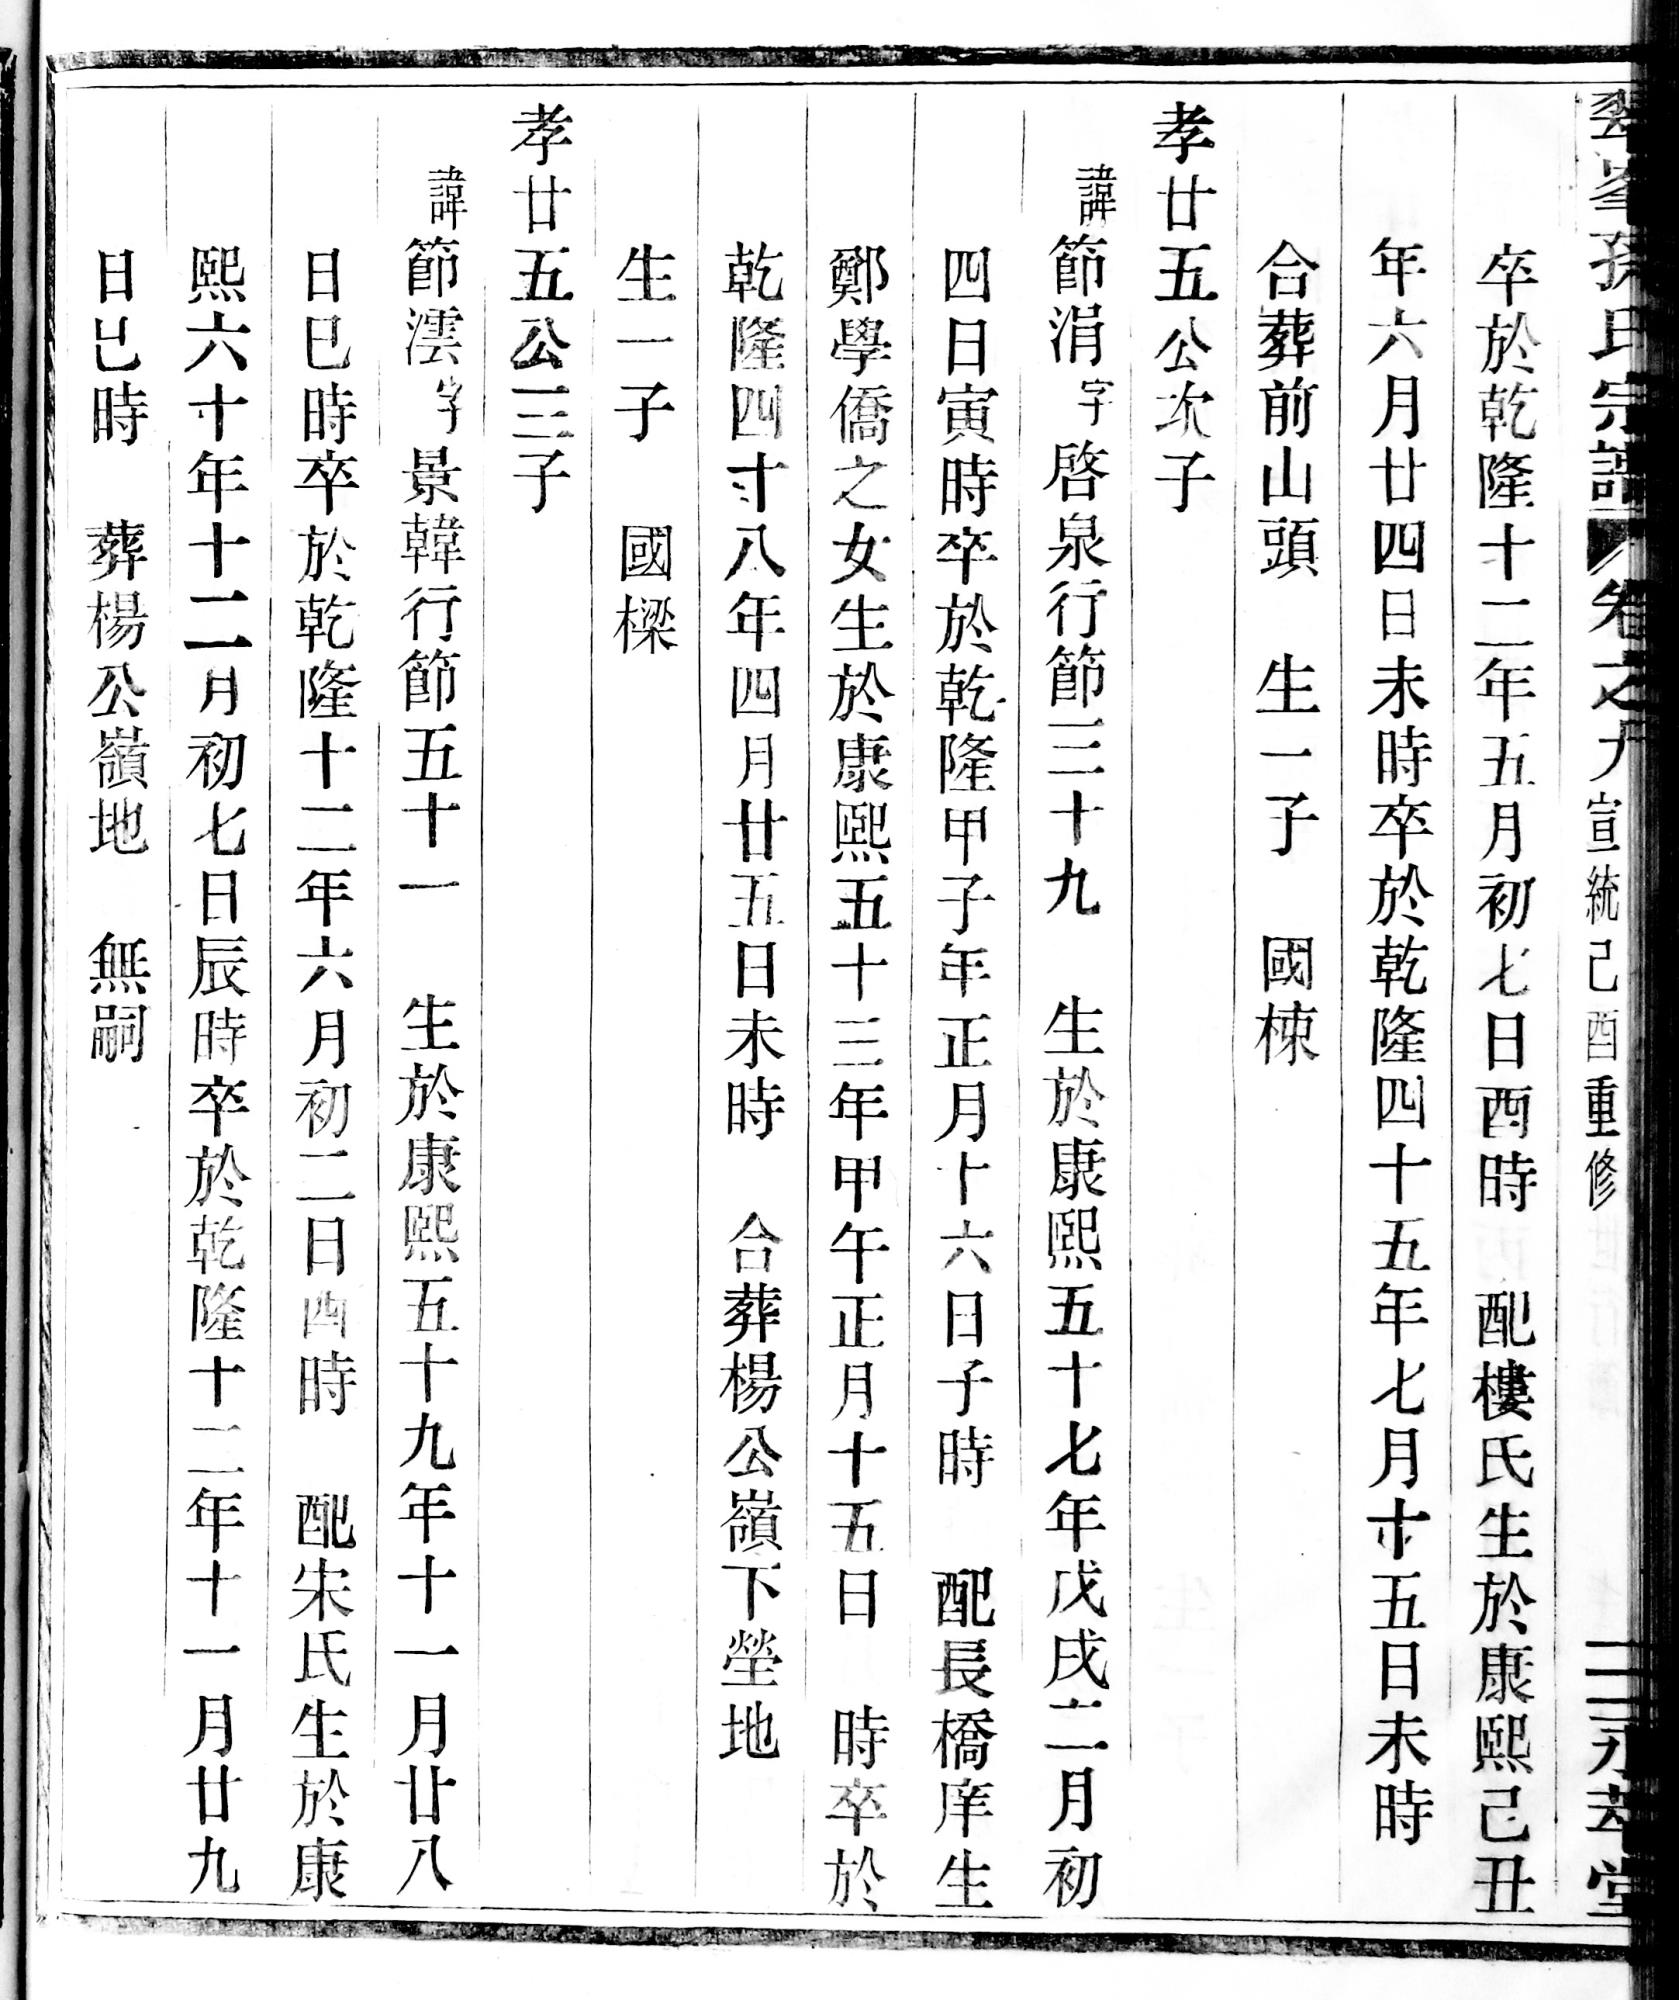 翠峯孫氏宗譜 卷之九 宣統己酉重修 二 永萃堂
卒於乾隆十二年五月初七日酉時 配樓氏生於康熙己丑
年六月廿四日未時卒於乾隆四十五年七月十五日未時
合葬前山頭 生一子 國棟
孝廿五公次子
諱節涓字啓泉行節三十九 生於康熙五十七年戊戌二月初
四日寅時卒於乾隆甲子年正月十六日子時 配長橋庠生
鄭學僑之女生於康熙五十三年甲午正月十五日 時卒於
乾隆四十八年四月廿五日未時 合葬楊公嶺下塋地
生一子 國樑
孝廿五公三子
諱節澐字景韓行節五十一 生於康熙五十九年十一月廿八
日巳時卒於乾隆十二年六月初二日酉時 配宋氏生於康
熙六十年十二月初七日辰時卒於乾隆十二年十一月廿九
日巳時 葬楊公嶺地 無嗣